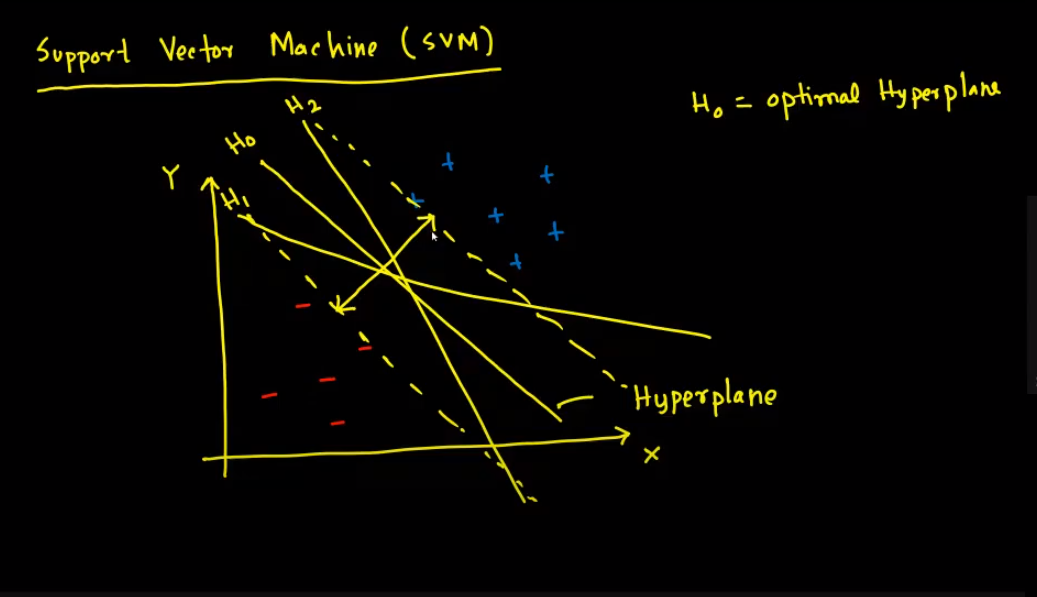 Support Vector Machine (SVM)
H₀ = optimal Hyperplane
H₂
H₀
Y
H₁
Hyperplane
X